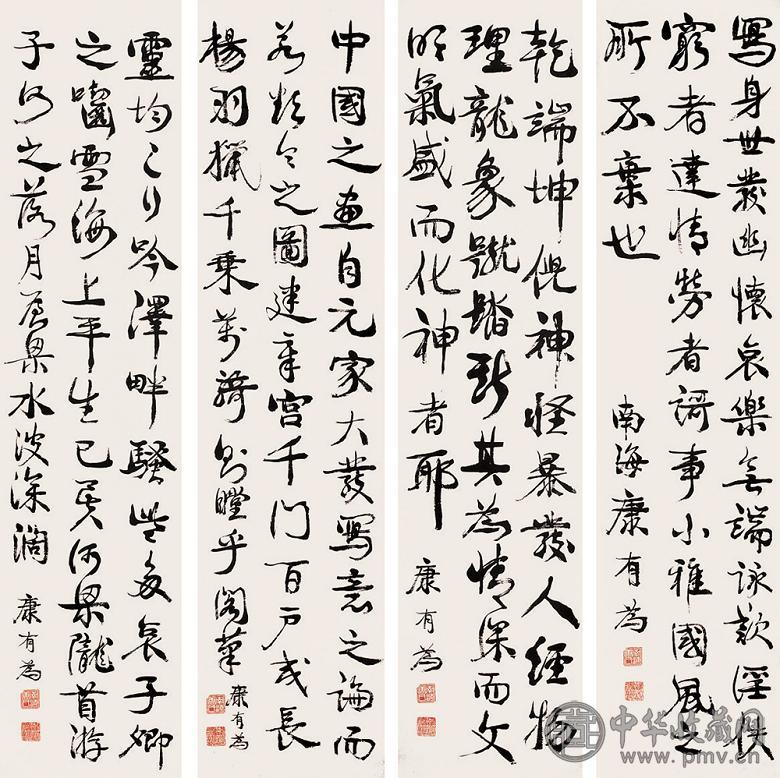 寫身世發幽懷哀樂無端詠歎淫佚
窮者達情勞者謌事小雅國風之
所不棄也
南海康有為
乾端坤倪神怪暴發人經物
理龍象蹴踏斯其為情深而文
明氣盛而化神者耶
康有為
中國之畫自元家大發寫意之論而
若欲令之圖建章宮千門百戶或長
楊羽獵千乘萬騎則瞠乎閣筆
康有為
靈均之行吟澤畔騷些多哀子卿
之嚙雪海上平生已矣河梁隴首游
子何之落月屋梁水波深濶
康有為
中华收藏网
www.pmv.cn